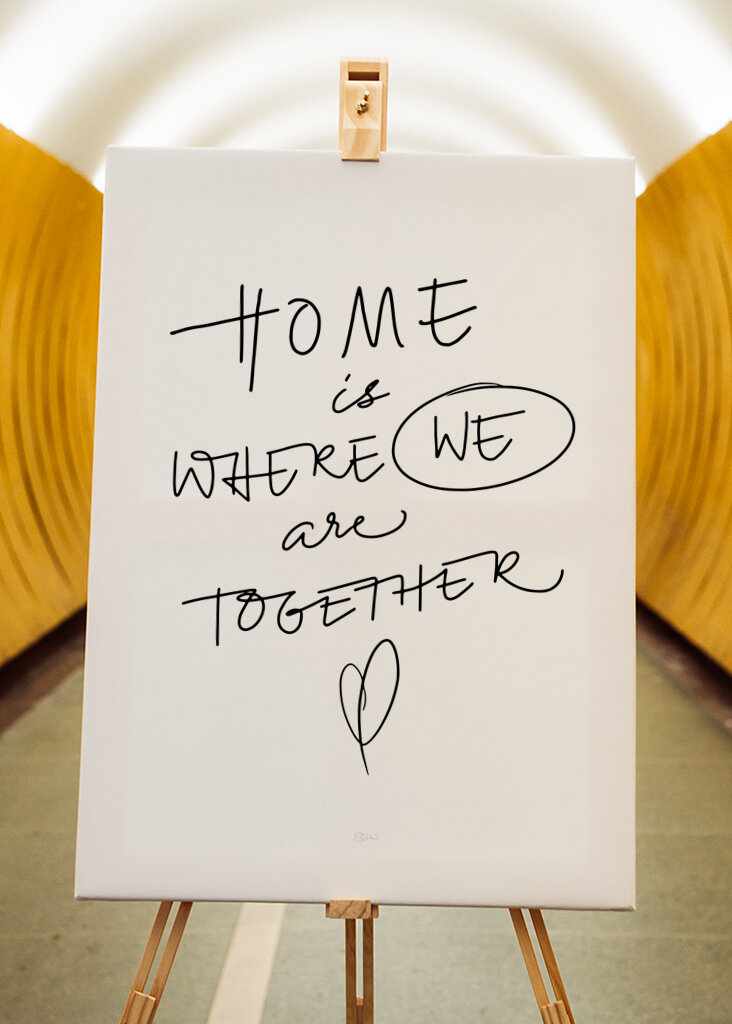 HOME
is
WHERE WE
are
TOGETHER